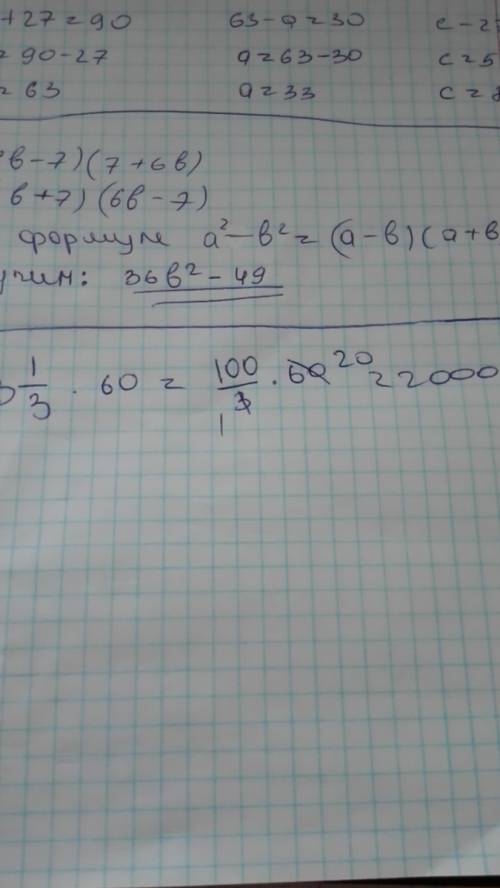 +27=90 63-a=30 c-2
=90-27 a=63-30 c=5
=63 a=33 c=
в-7)(7+6в)
в+7)(6в-7)
формуле a²-в²=(a-в)(a+в
учим: 36в²-49
1/3 · 60 = 100/3 · 60 20 = 2000
1